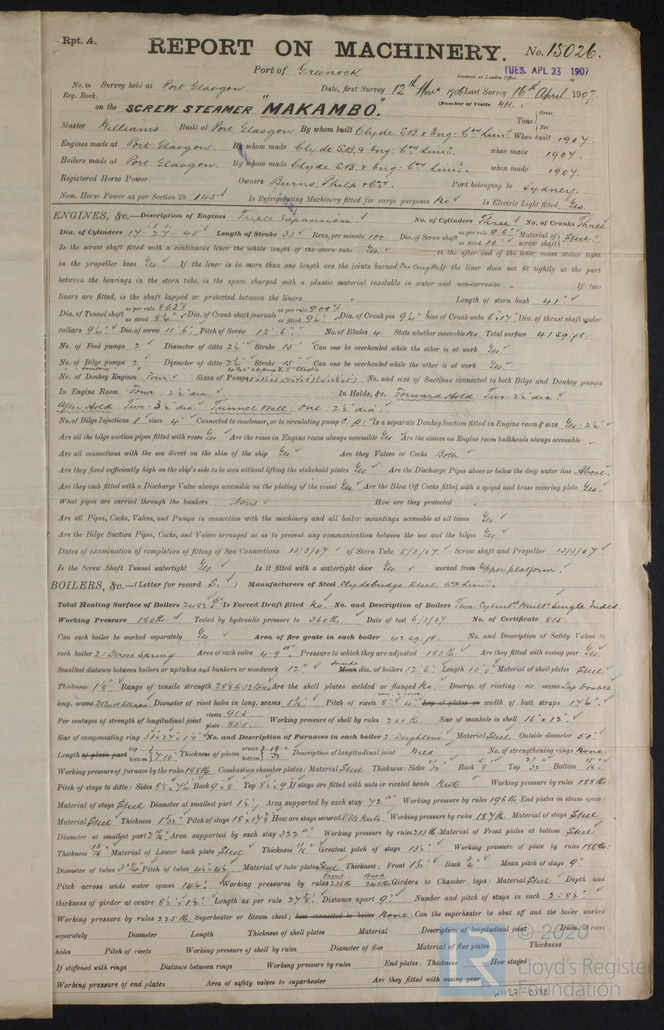 Rpt. 4.
REPORT ON MACHINERY. No. 15026.
Port of Greenock
Received at London Office TUES. APL 23 1907
No. in Survey held at Port Glasgow Date, first Survey 12th Nov. 1906 Last Survey 16th April 1907.
Reg. Book. (Number of Visits 44.)
on the SCREW STEAMER "MAKAMBO".
Tons Gross Net
Master Williams Built at Port Glasgow By whom built Clyde S.B. & Eng: Coy Limd. When built 1907.
Engines made at Port Glasgow By whom made Clyde S.B. & Eng: Coy Limd. when made 1907.
Boilers made at Port Glasgow. By whom made Clyde S.B. & Eng: Coy Limd. when made 1907.
Registered Horse Power Owners Burns, Philp & Co. Port belonging to Sydney.
Nom. Horse Power as per Section 28 145 Is Refrigerating Machinery fitted for cargo purposes No Is Electric Light fitted Yes.
ENGINES, &c.—Description of Engines Triple Expansion. No. of Cylinders Three No. of Cranks Three
Dia. of Cylinders 17" 27" 45" Length of Stroke 33" Revs. per minute 100 Dia. of Screw shaft as per rule 9.6" as fitted 10" Material of screw shaft Steel
Is the screw shaft fitted with a continuous liner the whole length of the stern tube Yes. Is the after end of the liner made water tight
in the propeller boss Yes If the liner is in more than one length are the joints burned One length If the liner does not fit tightly at the part
between the bearings in the stern tube, is the space charged with a plastic material insoluble in water and non-corrosive If two
liners are fitted, is the shaft lapped or protected between the liners Length of stern bush 41"
Dia. of Tunnel shaft as per rule 8.62" as fitted 8¾" Dia. of Crank shaft journals as per rule 9.05" as fitted 9¼" Dia. of Crank pin 9¼" Size of Crank webs Dia. of thrust shaft under
collars 9¼" Dia. of screw 11'.6" Pitch of Screw 12'.6" No. of Blades 4 State whether moveable No. Total surface 41 sq. ft.
No. of Feed pumps 2 Diameter of ditto 2½" Stroke 15" Can one be overhauled while the other is at work Yes.
No. of Bilge pumps 2 Diameter of ditto 2½" Stroke 15" Can one be overhauled while the other is at work Yes.
No. of Donkey Engines Four Sizes of Pumps No. and size of Suctions connected to both Bilge and Donkey pumps
In Engine Room Four 2½" dia. In Holds, &c. Forward Hold Two-2½" dia
After Hold Two-3½" dia Tunnel Well One 2½" dia.
No. of Bilge Injections 1 sizes 4" Connected to condenser, or to circulating pump C.P. Is a separate Donkey Suction fitted in Engine room & size Yes: 2½"
Are all the bilge suction pipes fitted with roses Yes Are the roses in Engine room always accessible Yes Are the sluices on Engine room bulkheads always accessible
Are all connections with the sea direct on the skin of the ship Yes. Are they Valves or Cocks Both
Are they fixed sufficiently high on the ship's side to be seen without lifting the stokehold plates Yes. Are the Discharge Pipes above or below the deep water line Above
Are they each fitted with a Discharge Valve always accessible on the plating of the vessel Yes Are the Blow Off Cocks fitted with a spigot and brass covering plate Yes.
What pipes are carried through the bunkers None How are they protected
Are all Pipes, Cocks, Valves, and Pumps in connection with the machinery and all boiler mountings accessible at all times Yes.
Are the Bilge Suction Pipes, Cocks, and Valves arranged so as to prevent any communication between the sea and the bilges Yes
Dates of examination of completion of fitting of Sea Connections 13/3/07 of Stern Tube 5/3/07 Screw shaft and Propeller 13/3/07
Is the Screw Shaft Tunnel watertight Yes. Is it fitted with a watertight door Yes. worked from Upper platform.
BOILERS, &c.—(Letter for record S.) Manufacturers of Steel Clydebridge Steel Coy Limd.
Total Heating Surface of Boilers 2482 Is Forced Draft fitted No. No. and Description of Boilers Two: Cylindl Multl Single Ended.
Working Pressure 180 lb. Tested by hydraulic pressure to 360 lb. Date of test 6/3/07 No. of Certificate 815.
Can each boiler be worked separately Yes Area of fire grate in each boiler 42 sq. ft. No. and Description of Safety Valves to
each boiler 2: Direct Spring Area of each valve Pressure to which they are adjusted 185 lb. Are they fitted with easing gear Yes.
Smallest distance between boilers or uptakes and bunkers or woodwork 12" Inside Mean dia. of boilers 12'.6" Length 10'.0" Material of shell plates Steel
Thickness Range of tensile strength 28 & 32 tons Are the shell plates welded or flanged No. Descrip. of riveting: cir. seams Lap Double
long. seams Diameter of rivet holes in long. seams Pitch of rivets Lap of plates or width of butt straps 17¼"
Per centages of strength of longitudinal joint rivets 91.5 plate 85.1 Working pressure of shell by rules 201 lb. Size of manhole in shell 16" x 12"
Size of compensating ring No. and Description of Furnaces in each boiler 2: Deightons Material Steel Outside diameter 50"
Length of plain part top bottom Thickness of plates crown bottom Description of longitudinal joint Weld No. of strengthening rings None
Working pressure of furnace by the rules 188 lb. Combustion chamber plates: Material Steel Thickness: Sides Back Top Bottom
Pitch of stays to ditto: Sides Back 9 x 8 Top If stays are fitted with nuts or riveted heads Nuts Working pressure by rules 188 lb.
Material of stays Steel Diameter at smallest part Area supported by each stay 72 Working pressure by rules 196 lb. End plates in steam space:
Material Steel Thickness Pitch of stays How are stays secured Working pressure by rules 187 lb. Material of stays Steel
Diameter at smallest part Area supported by each stay 322 Working pressure by rules 213 lb. Material of Front plates at bottom Steel
Thickness Material of Lower back plate Steel Thickness Greatest pitch of stays Working pressure of plate by rules 186 lb.
Diameter of tubes Pitch of tubes Material of tube plates Steel Thickness: Front Back Mean pitch of stays 9"
Pitch across wide water spaces 14¼" Working pressures by rules Front Back Girders to Chamber tops: Material Steel Depth and
thickness of girder at centre Length as per rule Distance apart 9" Number and pitch of stays in each 2:
Working pressure by rules 225 lb. Superheater or Steam chest; how connected to boiler None. Can the superheater be shut off and the boiler worked
separately Diameter Length Thickness of shell plates Material Description of longitudinal joint Diam. of rivet
holes Pitch of rivets Working pressure of shell by rules Diameter of flue Material of flue plates Thickness
If stiffened with rings Distance between rings Working pressure by rules End plates: Thickness How stayed
Working pressure of end plates Area of safety valves to superheater Are they fitted with easing gear
© 2020
Lloyd's Register
Foundation